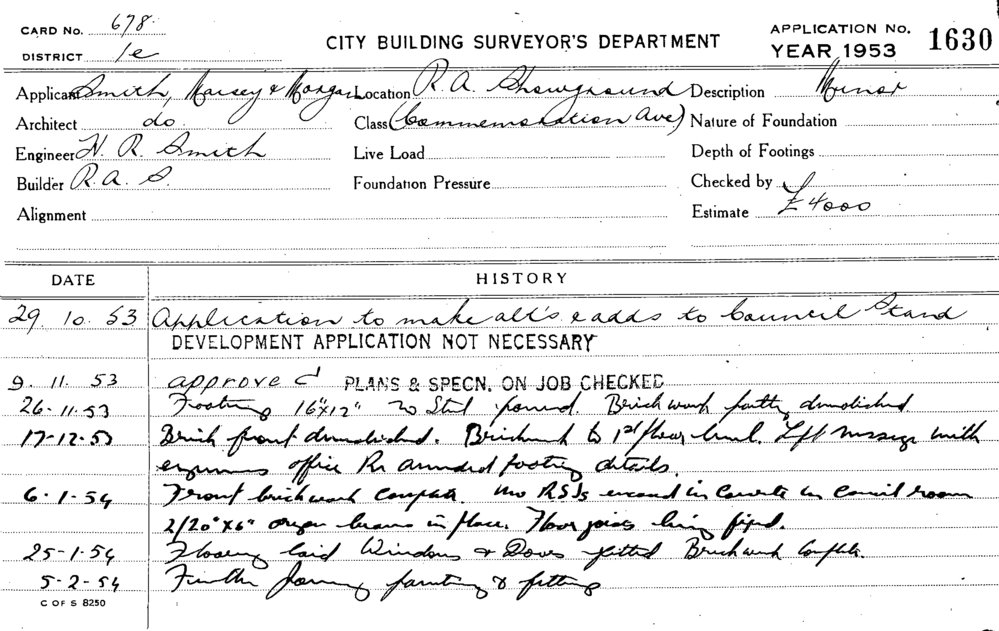 CARD No. 678.
DISTRICT 1e
CITY BUILDING SURVEYOR'S DEPARTMENT
APPLICATION No. 1630
YEAR 1953
Applicant Smith, Harsey & Morgan Location R. A. Showground Description Minor
Architect do. Class (Commemoration Ave) Nature of Foundation
Engineer H. R. Smith Live Load Depth of Footings
Builder R. A. S. Foundation Pressure Checked by
Alignment Estimate £4000
DATE HISTORY
29. 10. 53 Application to make alt's & adds to Council Stand
DEVELOPMENT APPLICATION NOT NECESSARY
9. 11. 53 approved PLANS & SPECN. ON JOB CHECKED
26-11-53 Footing 16"x12" no Steel poured. Brickwork partly demolished
17-12-53 Brick front demolished. Brickwork to 1st floor level. Left message with
engineers office Re amended footing details.
6-1-54 Front brickwork complete. RSJs encased in Concrete in Council room
2/20"x6" oregon beams in place. Floor joists being fixed.
25-1-54 Flooring laid Windows & Doors fitted Brickwork Complete.
5-2-54 Further Joinery painting & fitting
C OF S 8250